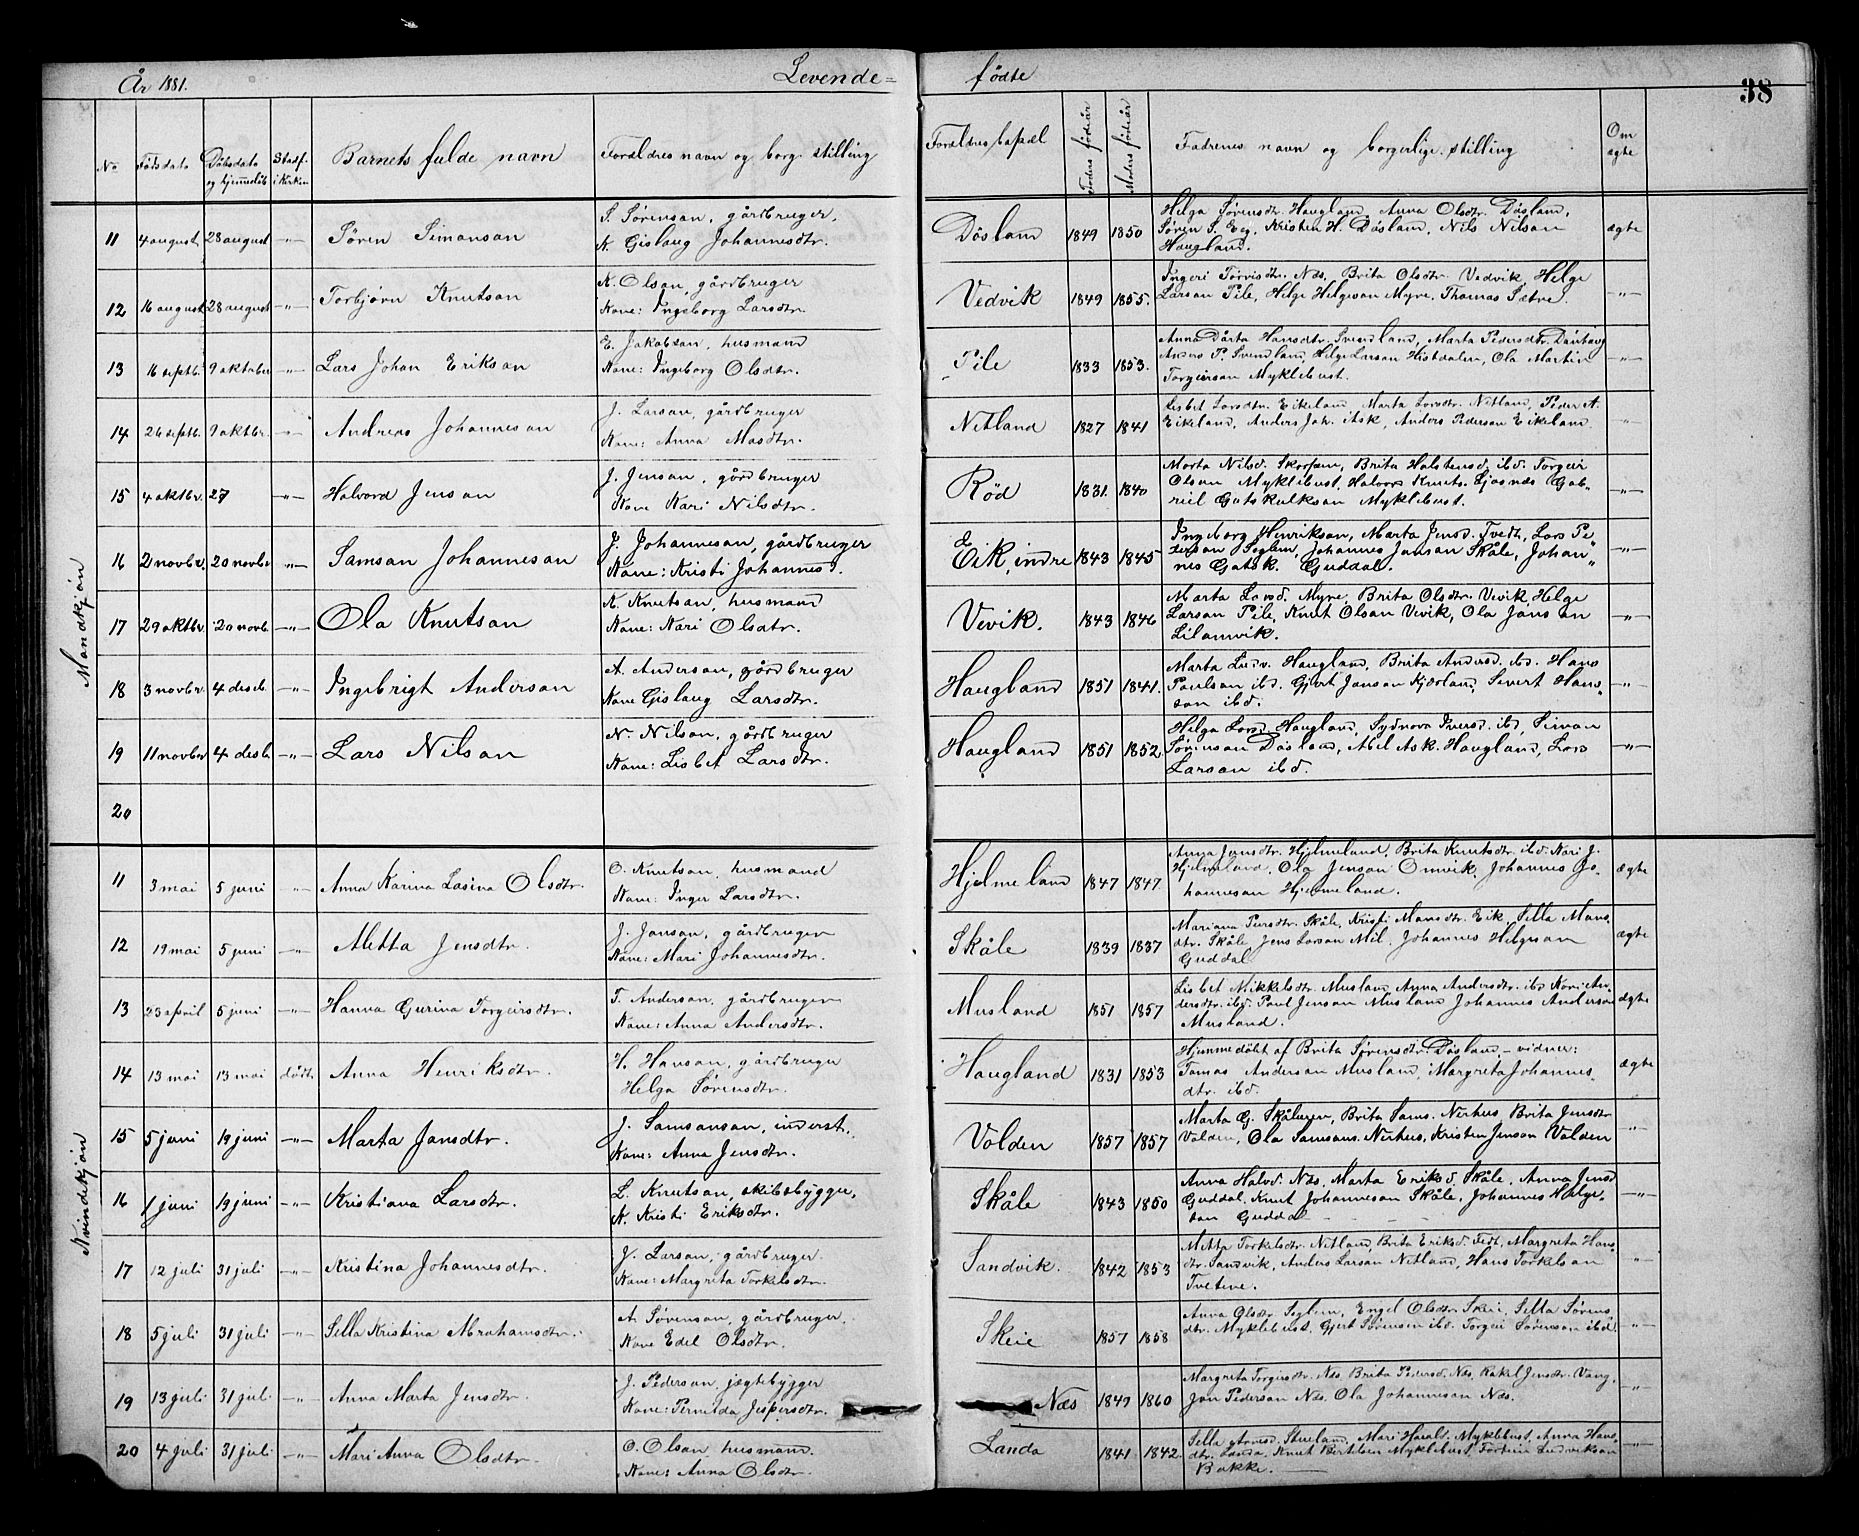 År 1881. Levende= fødte 38
No Fødsdato Døbsdato og hjemmedåb Stadf. i Kirken Barnets fulde navn Forældres navn og borg. stilling Forældres bopæl Faders fødeår Moders fødeår Fadrenes navn og borgerlige stilling Om ægte
Mandkjøn
11 4 august 28 august -"- Søren Simonson
S. Sørenson, gårdbruger,
K. Gislaug Johannesdtr.
Døsland 1849 1850
Helga Sørensdtr. Haugland, Anna Olsdtr. Døsland,
Søren S. Eeg, Kristen H. Døsland, Nils Nilson
Haugland.
ægte
12 16 august 28 august -"- Torbjørn Knutson
K. Olson, gårdbruger
Kone: Ingeborg Larsdtr.
Vedvik 1849 1855.
Ingeri Torvisdtr. Næs, Brita Olsdtr. Vedvik, Helge
Larson Pile, Helge Helgeson Myre, Thomas Sætre.
-"-
13 16 septb. 9 oktober -"- Lars Johan Erikson
E. Jakobson, husmand
Kone: Ingeborg Olsdtr.
Pile 1833 1853.
Anna Dårta Hansdtr. Svendland, Marta Pedersdtr.
Anders P. Svendland, Helge Larson Histdalen, Ola Martin
Torgeirson Myklebust.
-"-
14 26 septb. 9 oktbr. -"- Andreas Johanneson
J. Larson, gårdbruger
Kone: Anna Masdtr.
Nitland 1827 1841
Lisbet Larsdtr. Eikeland, Marta Larsdtr. Nitland, Peder A.
Eikeland, Anders Joh. Ask, Anders Pederson Eikeland.
-"-
15 4 oktbr. 27 -"- Halvord Jenson
J. Jenson, gårdbruger
Kone Kari Nilsdtr.
Rød 1831. 1840
Marta Nilsd. Brita Halstensd. ibd. Torgeir
Olson Myklebust, Halvor Knuts. Ljosnæs Gab-
riel Gotskalkson Myklebust.
-"-
16 2 novbr. 20 novbr -"- Samson Johanneson
J. Johanneson, gårdbruger
Kone: Kristi Johannesd.
Eik, indre 1843 1845
Ingeborg Henrikson, Marta Jensd. Tvedt, Lars Pe-
terson Seglem, Johannes Janson Skåle, Johan-
nes Gotsk. Guddal.
-"-
17 29 oktbr. 20 novb. -"- Ola Knutson
K. Knutson, husmand
Kone: Kari Olsdtr.
Vevik. 1843 1846
Marta Larsd. Myre, Brita Olsdtr. Vevik, Helge
Larson Pile, Knut Olson Vevik, Ola Janson
Lilamvik.
-"-
18 3 novbr. 4 deseb. -"- Ingebrigt Anderson
A. Anderson, gårdbruger
Kone Gislaug Larsdtr.
Haugland 1851 1841.
Marta Ludv. Haugland, Brita Andersd. ibd. Hans
Paulson ibd. Gjert Janson Kjærland, Sivert Han-
son ibd.
-"-
19 11 novbr 4 desb. -"- Lars Nilson
N. Nilson, gårdbruger
Kone: Lisbet Larsdtr.
Haugland 1851 1852
Helga Larsd. Haugland, Sydnova Iversd. ibd, Simon
Sørenson Døsland, Abel Ask. Haugland, Lars
Larson ibd.
-"-
20
Kvindekjøn
11 3 mai 5 juni -"- Anna Karina Lasina Olsdtr.
O. Knutson, husmand
Kone: Inger Larsdtr.
Hjelmeland 1847 1847
Anna Jensdtr. Hjelmeland, Brita Knutsdtr. ibd. Kari J.
Hjelmeland, Ola Jenson Omvik, Johannes Jo-
hanneson Hjelmeland.
ægte
12 19 mai 5 juni -"- Metta Jensdtr.
J. Janson, gårdbruger
Kone: Mari Johannesdtr.
Skåle 1839 1837
Mariana Persdtr. Skåle, Kristi Monsdtr. Eik, Sella Mons-
dtr. Skåle, Jens Larson Mel, Johannes Helgeson
Guddal
ægte
13 23 april 5 juni -"- Hanna Gurina Torgeirsdtr.
T. Anderson, gårdbruger
Kone: Anna Andersdtr.
Musland 1851 1857
Lisbet Mikkelsdtr. Musland, Anna Andersdtr. ibd Kari An-
dersdtr. ibd. Paul Jenson Musland Johannes Anderson
Musland.
ægte
14 13 mai 13 mai dødt. Anna Henriksdtr.
H. Hanson, gårdbruger
Helga Sørensdtr.
Haugland 1831 1853
Hjemmedøbt af Brita Sørensdtr. Døsland, – vidner:
Tomas Anderson Musland, Margreta Johannes-
dtr. ibd.
ægte
15 5 juni 19 juni -"- Marta Jansdtr.
J. Samsonson, inderst.
Kone: Anna Jensdtr.
Volden 1857 1857
Marta G. Skåluren, Brita Sams. Nerhus, Brita Jensdtr
Volden, Ola Samsons. Nerhus, Kristen Jenson Volden
-"-
16 1 juni 19 juni -"- Kristiana Larsdtr.
L. Knutson, skibsbygger,
K. Kristi Eriksdtr.
Skåle 1843 1850
Anna Halvd. Næs, Marta Eriksd. Skåle, Anna Jensd
Guddal, Knut Johanneson Skåle, Johannes Helge-
son Guddal
-"-
17 12 juli 31 juli -"- Kristina Johannesdtr.
J. Larson, gårdbruger
Kone: Margreta Torkelsdtr.
Sandvik. 1842 1853
Metta Torkelsdtr. Nitland, Brita Eriksd. Tvedt, Margreta Hans-
dtr. Sandvik, Anders Larson Nitland, Hans Torkelson
Tvetene.
-"-
18 5 juli 31 juli -"- Sella Kristina Abrahamsdtr.
A. Sørenson, gårdbruger,
Kone Edel Olsdtr.
Skeie 1857 1858
Anna Olsdtr. Seglem, Engel Olsdtr. Skeie, Sella Sørens-
dtr. Myklebust, Gjert Sørenson ibd. Torgeir Sørenson ibd.
-"-
19 13 juli 31 juli -"- Anna Marta Jensdtr.
J. Pederson, jægtebygger
Kone: Pernilda Jespersdtr.
Næs 1849 1860
Margreta Torgeirsdtr. Næs, Brita Pedersd. Næs Rakel Jensdtr. Vang,
Jon Pederson Næs, Ola Johanneson Næs.
-"-
20 4 juli 31 juli -"- Mari Anna Olsdtr.
O. Olson husmand.
Kone: Anna Olsdtr.
Landa 1841 1842.
Sella Arnesd. Mari Harald. Myklebust, Anna Hans-
dtr. Landa, Knut Bertelsen Myklebust, Torbein Ludvikson
Bakke.
-"-